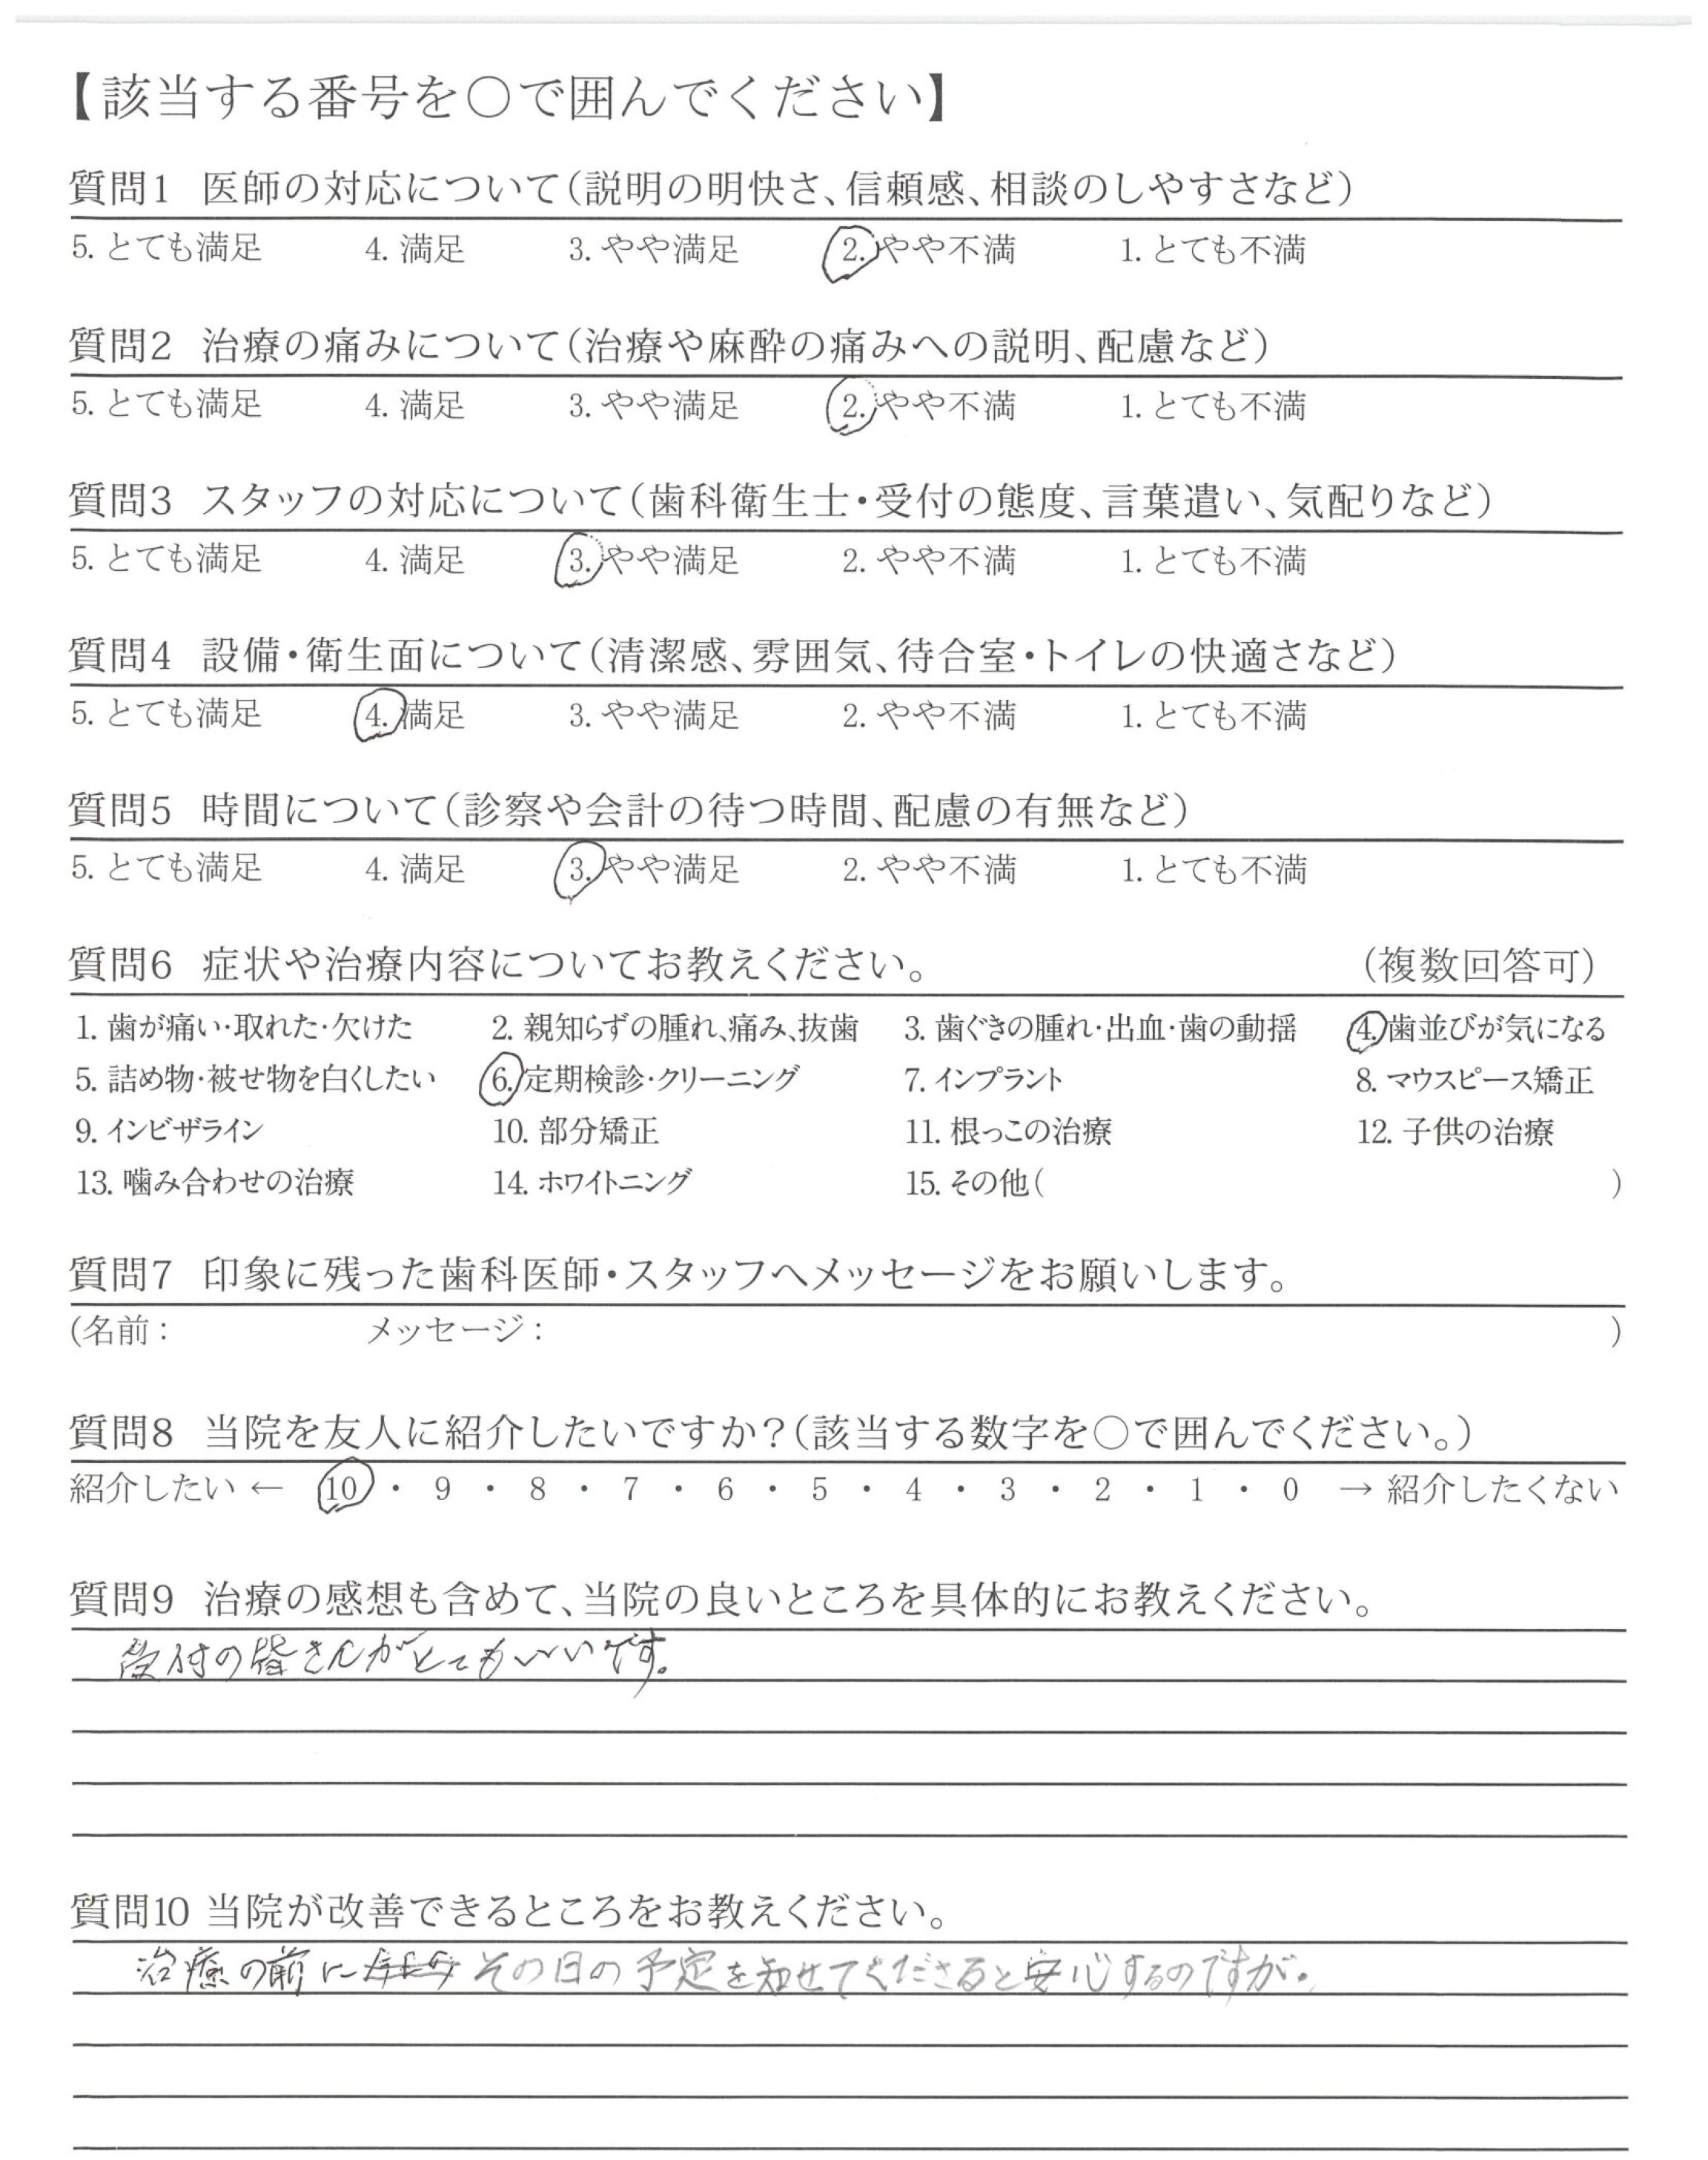 【該当する番号を○で囲んでください】
質問1 医師の対応について(説明の明快さ、信頼感、相談のしやすさなど)
5. とても満足 4. 満足 3. やや満足 2. やや不満 1. とても不満
質問2 治療の痛みについて(治療や麻酔の痛みへの説明、配慮など)
5. とても満足 4. 満足 3. やや満足 2. やや不満 1. とても不満
質問3 スタッフの対応について(歯科衛生士・受付の態度、言葉遣い、気配りなど)
5. とても満足 4. 満足 3. やや満足 2. やや不満 1. とても不満
質問4 設備・衛生面について(清潔感、雰囲気、待合室・トイレの快適さなど)
5. とても満足 4. 満足 3. やや満足 2. やや不満 1. とても不満
質問5 時間について(診察や会計の待つ時間、配慮の有無など)
5. とても満足 4. 満足 3. やや満足 2. やや不満 1. とても不満
質問6 症状や治療内容についてお教えください。 (複数回答可)
1. 歯が痛い・取れた・欠けた 2. 親知らずの腫れ、痛み、抜歯 3. 歯ぐきの腫れ・出血・歯の動揺 4. 歯並びが気になる
5. 詰め物・被せ物を白くしたい 6. 定期検診・クリーニング 7. インプラント 8. マウスピース矯正
9. インビザライン 10. 部分矯正 11. 根っこの治療 12. 子供の治療
13. 噛み合わせの治療 14. ホワイトニング 15. その他( )
質問7 印象に残った歯科医師・スタッフへメッセージをお願いします。
(名前： メッセージ： )
質問8 当院を友人に紹介したいですか？(該当する数字を○で囲んでください。)
紹介したい ← 10 ・ 9 ・ 8 ・ 7 ・ 6 ・ 5 ・ 4 ・ 3 ・ 2 ・ 1 ・ 0 → 紹介したくない
質問9 治療の感想も含めて、当院の良いところを具体的にお教えください。
受付の皆さんがとてもいいです。
質問10 当院が改善できるところをお教えください。
治療の前に その日の予定を知せてくださると安心するのですが。